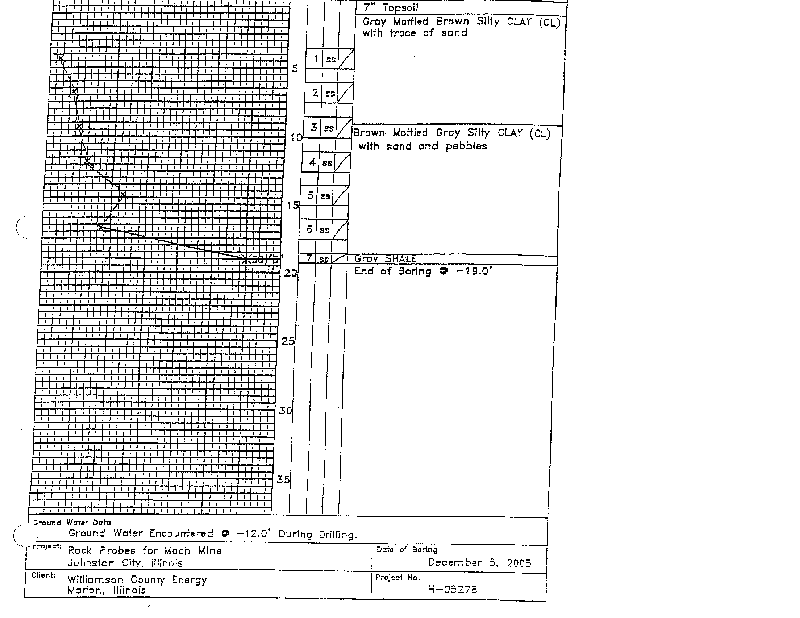 7" Topsoil
Gray Mottled Brown Silty CLAY (CL)
with trace of sand
1 ss
5
2 ss
3 ss
10
Brown Mottled Gray Silty CLAY (CL)
with sand and pebbles
4 ss
5 ss
15
6 ss
7 ss
Gray SHALE
20
End of Boring @ -19.0'
25
30
35
Ground Water Data
Ground Water Encountered @ -12.0' During Drilling.
Project:
Rock Probes for Mach Mine
Johnston City, Illinois
Date of Boring
December 5, 2005
Client:
Williamson County Energy
Marion, Illinois
Project No.
H-05278